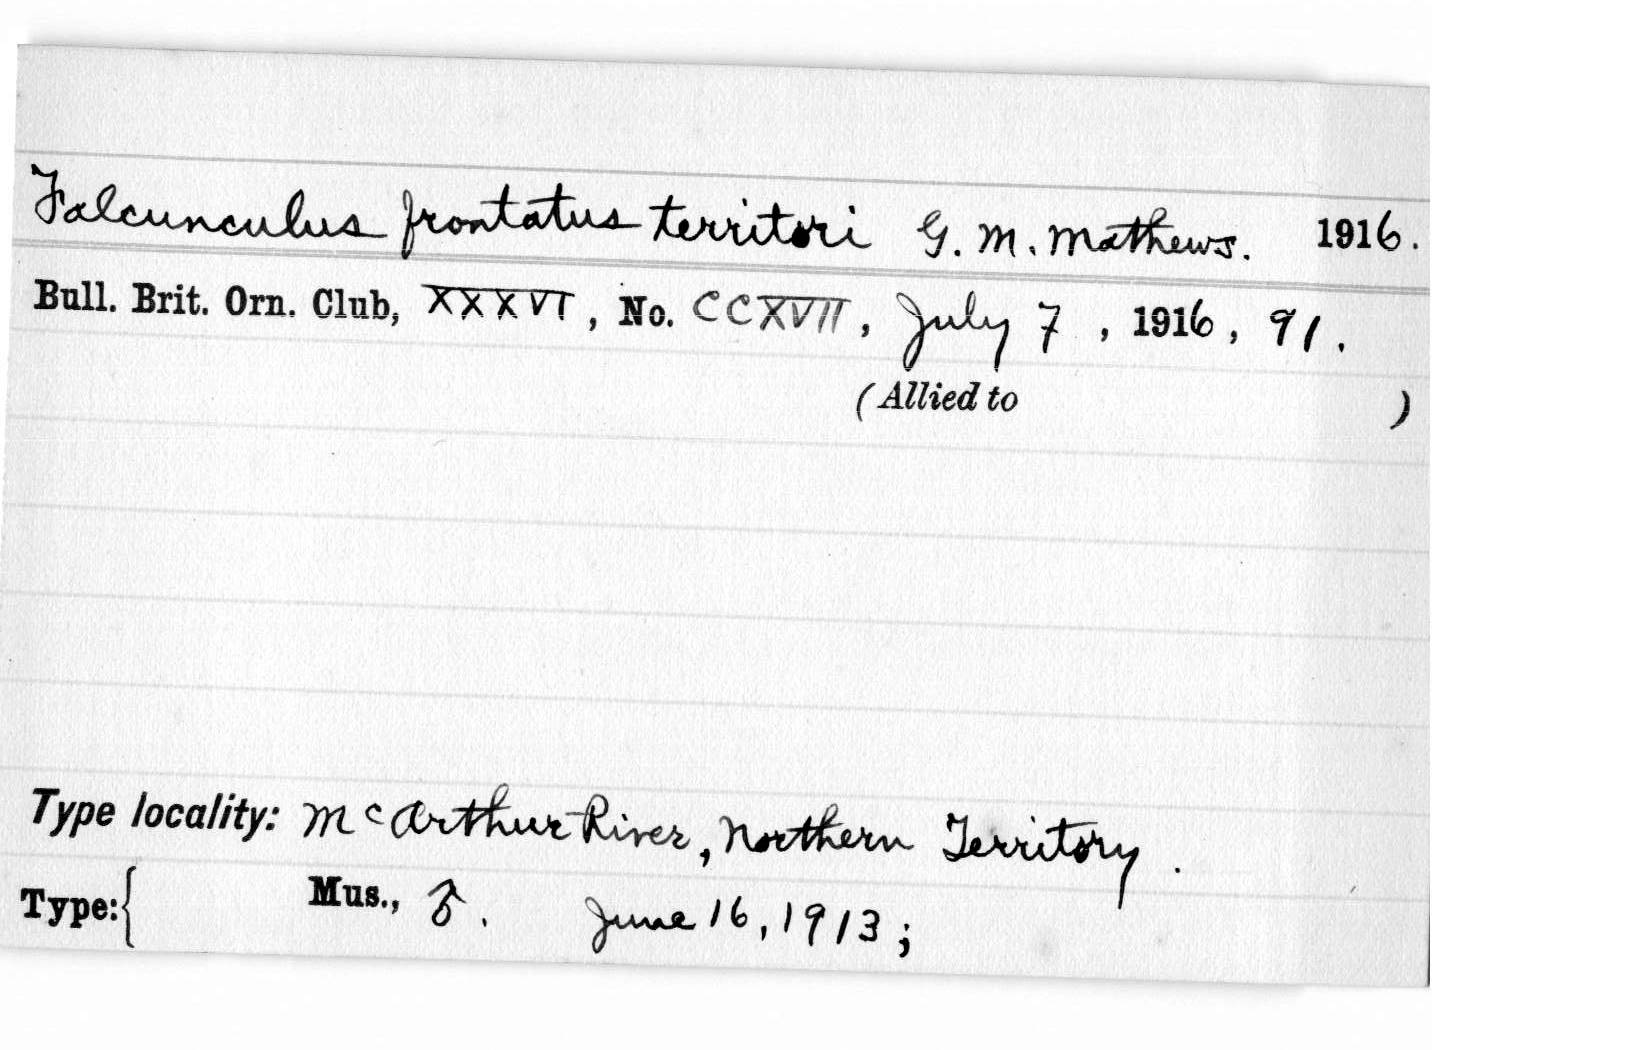 Falcunculus frontatus territori G. M. Mathews. 1916.
Bull. Brit. Orn. Club, XXXVI, No. CCXVII, July 7, 1916, 91.
(Allied to )
Type locality: McArthur River, Northern Territory.
Type:{ Mus., ♂. June 16, 1913;